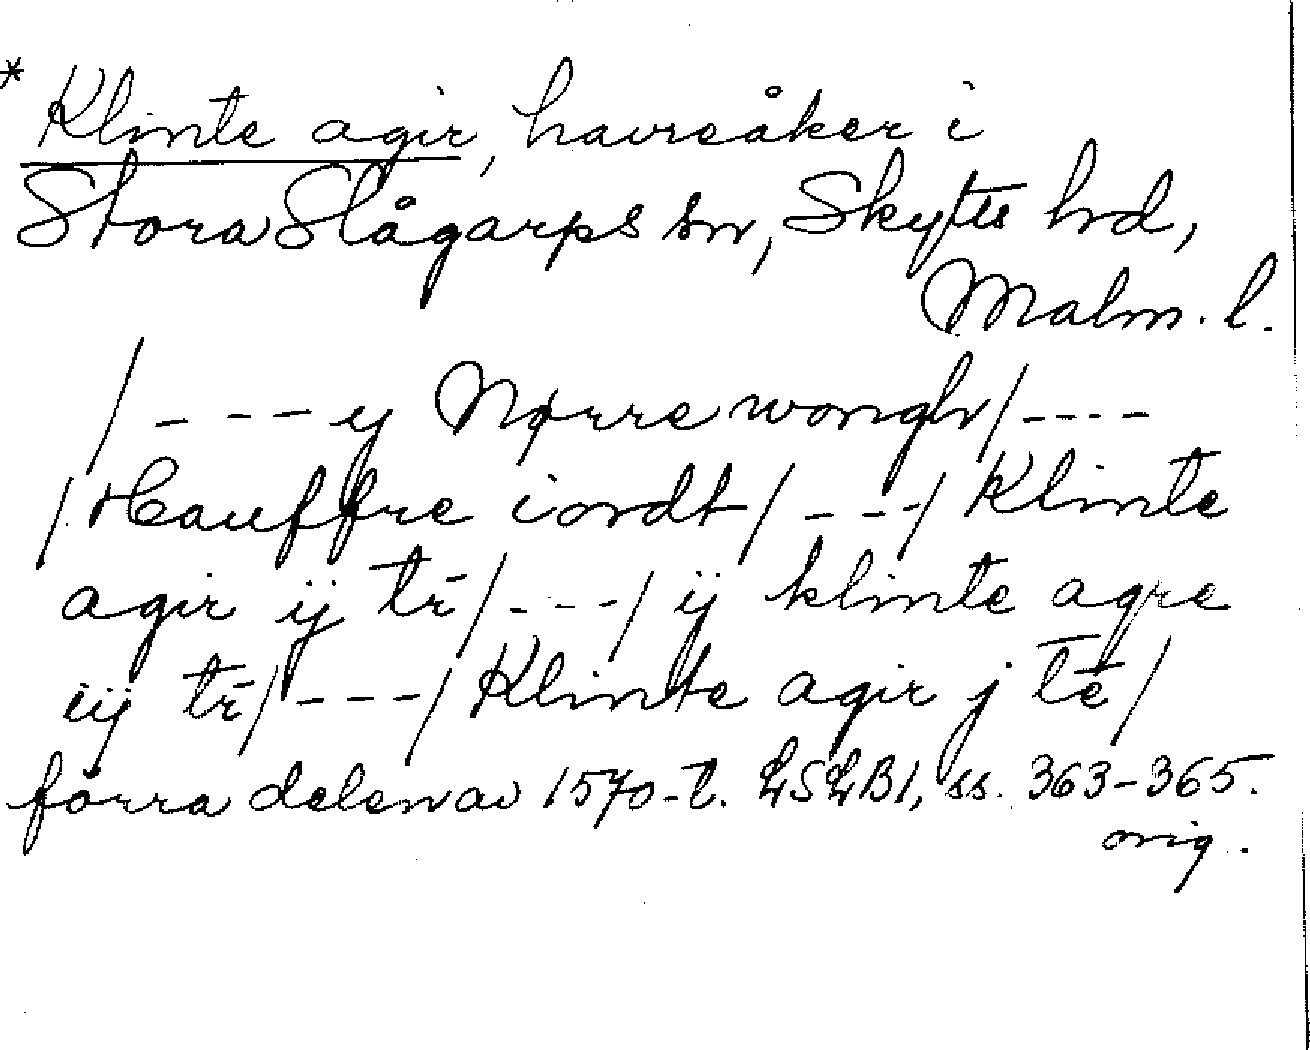 * Klinte agir, havreåker i
Stora Slågarps sn, Skytts hd,
Malm. l.
/ - - - ij Nørre wongh/ - - - -
/Hauffre iordt/ - - -/ Klinte
agir ij tr̄/ - - -/ ij klinte agre
iij tr̄/ - - -/ Klinte agir j tē/
förra delen av 1570-t. LSLB1, ss. 363-365.
orig.